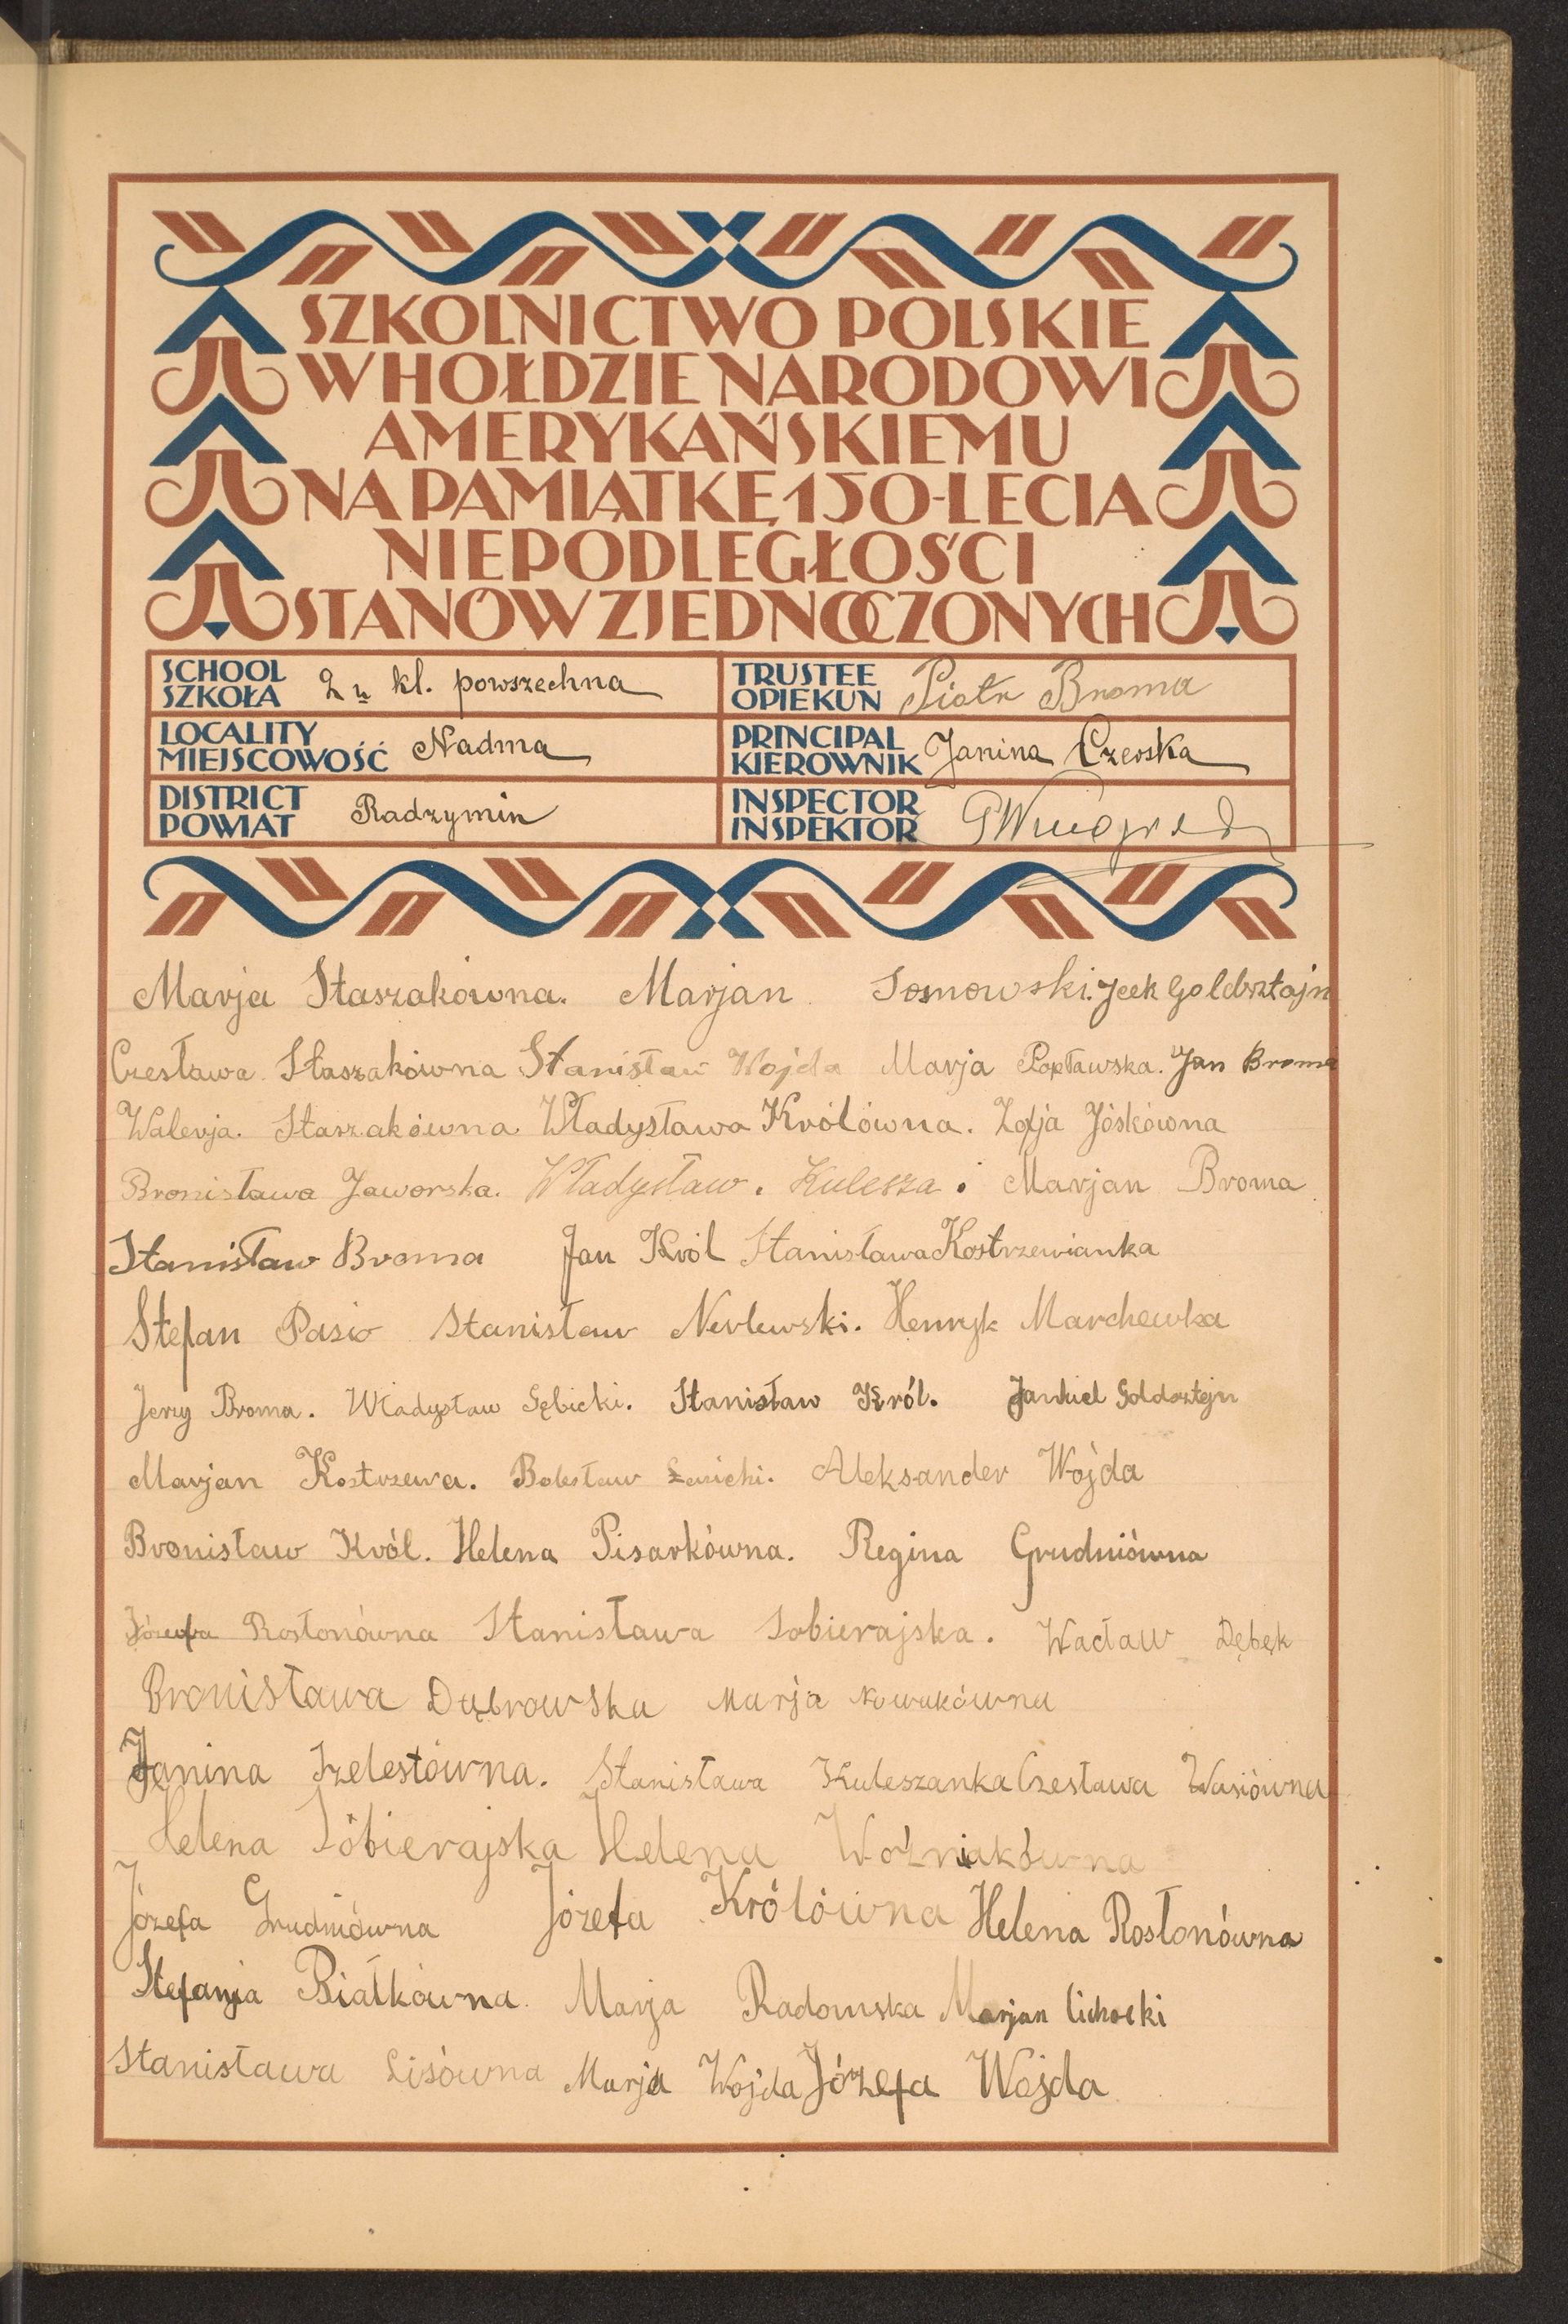 SZKOLNICTWO POLSKIE
W HOŁDZIE NARODOWI
AMERYKAŃSKIEMU
NA PAMIĄTKĘ 150-LECIA
NIEPODLEGŁOŚCI
STANÓW ZJEDNOCZONYCH
SCHOOL SZKOŁA 2 kl. powszechna
TRUSTEE OPIEKUN Piotr Broma
LOCALITY MIEJSCOWOŚĆ Nadma
PRINCIPAL KIEROWNIK Janina Czerska
DISTRICT POWIAT Radzymin
INSPECTOR INSPEKTOR
Marja Staszakówna. Marjan Sosnowski. Jcek Goldsztajn
Czesława Staszakówna Stanisław Wojda Marja Popławska. Jan Broma
Walerja. Staszakówna Władysława Królówna. Zofja Jóskówna
Bronisława Jaworska. Władysław. Kulesza. Marjan Broma
Stanisław Broma Jan Król Stanisława Kostrzewianka
Stefan Pasio Stanisław Nerlewski. Henryk Marchewka
Jerzy Broma. Władysław Gębicki. Stanisław Król. Jankiel Goldsztejn
Marjan Kostrzewa. Bolesław Aleksander Wójda
Bronisław Król. Helena Pisarkówna. Regina Grudniówna
Józefa Rosłonówna Stanisława Sobierajska. Wacław Dębek
Bronisława Dąbrowska Marja Nowakówna
Janina Szelestówna. Stanisława Kuleszanka Czesława Wasiówna
Helena Sobierajska Helena Woźniakówna
Józefa Grudniówna Józefa Królówna Helena Rosłonówna
Stefanja Białkówna. Marja Radomska Marjan Cichocki
Stanisława Lisówna Marja Wojda Józefa Wojda